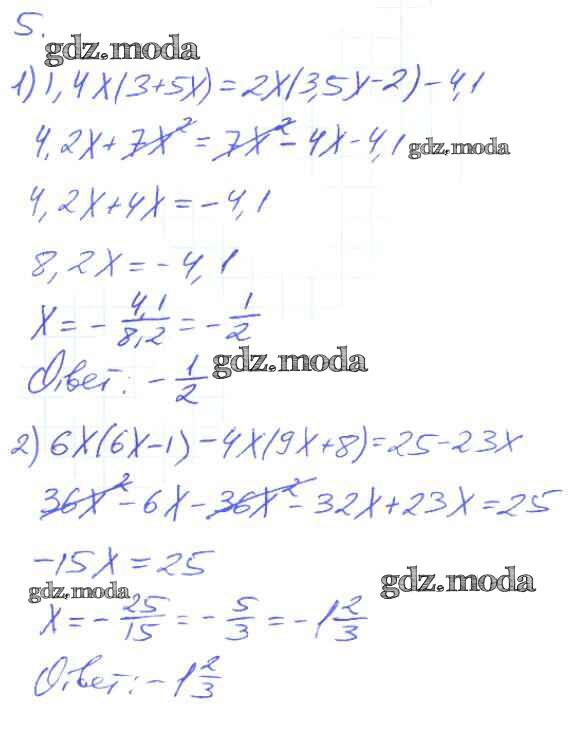 5.
gdz.moda
1) 1,4x(3+5x)=2x(3,5x-2)-4,1
4,2x+7x²=7x²-4x-4,1 gdz.moda
4,2x+4x=-4,1
8,2x=-4,1
x=-4,1/8,2=-1/2
Ответ: -1/2 gdz.moda
2) 6x(6x-1)-4x(9x+8)=25-23x
36x²-6x-36x²-32x+23x=25
-15x=25
gdz.moda gdz.moda
x=-25/15=-5/3=-1 2/3
Ответ: -1 2/3